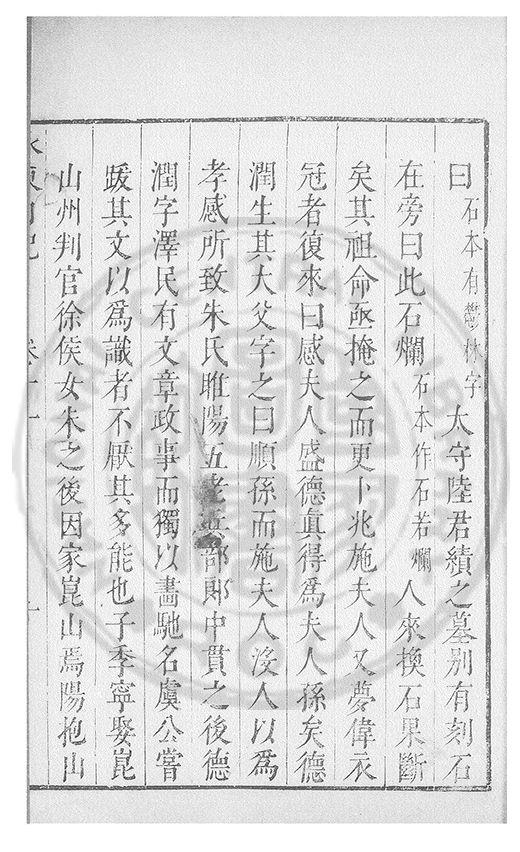 曰石本有鬱林字太守陸君績之墓別有刻石
在旁曰此石爛石本作石若爛人來換石果斷
矣其祖命亟掩之而更卜兆施夫人又夢偉衣
冠者復來曰感夫人盛德真得爲夫人孫矣德
潤生其大父字之曰順孫而施夫人沒人以爲
孝感所致朱氏睢陽五老兵部郎中貫之後德
潤字澤民有文章政事而獨以畫馳名虞公嘗
跋其文以爲識者不厭其多能也子季寧娶崑
山州判官徐侯女朱之後因家崑山焉陽抱山